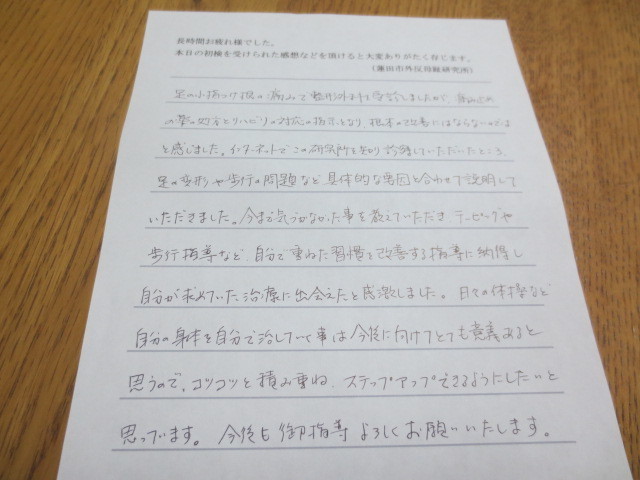 長時間お疲れ様でした。
本日の初検を受けられた感想などを頂けると大変ありがたく存じます。
(蓮田市外反母趾研究所)
足の小指つけ根の痛みで整形外科を受診しましたが、痛み止め
の薬の処方とリハビリの対応の指示となり、根本の改善にはならないのでは
と感じました。インターネットでこの研究所を知り診ていただいたところ、
足の変形や歩行の問題など具体的な要因と合わせて説明して
いただきました。今まで気づかなかった事を教えていただき テーピングや
歩行指導など、自分で重ねた習慣を改善する指導に納得し
自分が求めていた治療に出会えたと感激しました。日々の体操など
自分の身体を自分で治していく事は今後に向けてとても意義あると
思うので、コツコツと積み重ね、ステップアップできるようにしたいと
思っています。 今後も御指導よろしくお願いいたします。